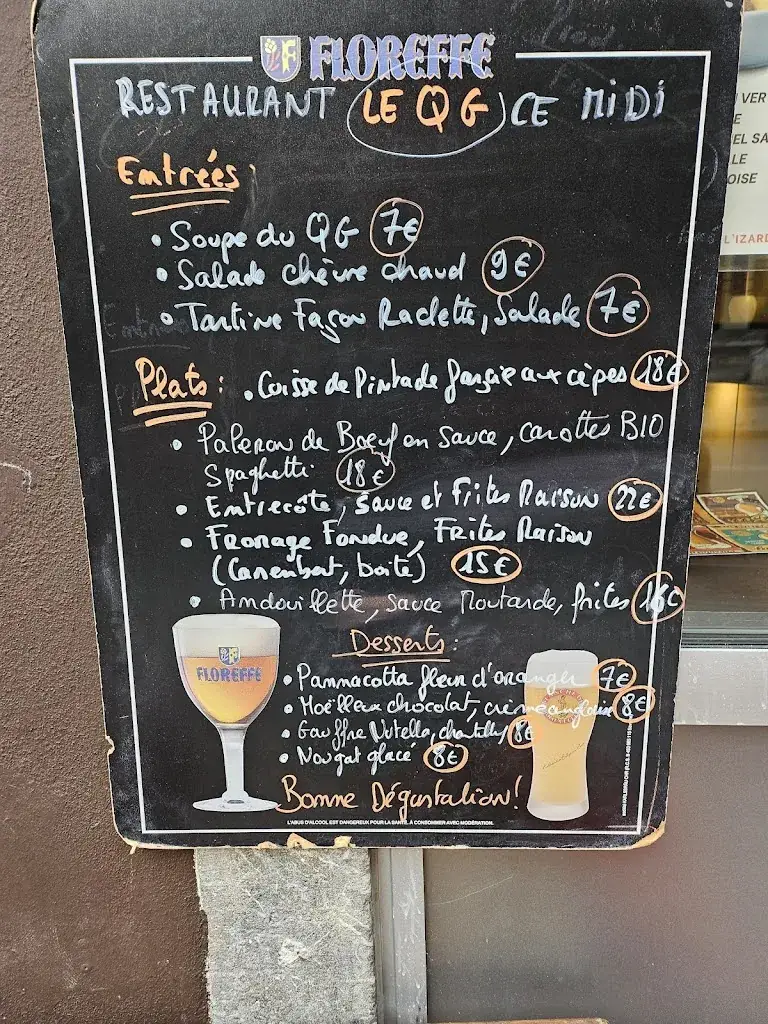 FLOREFFE
RESTAURANT LE QG CE MIDI
Entrées:
• Soupe du QG 7€
• Salade chèvre chaud 9€
• Tartine Façon Raclette, Salade 7€
Plats: • Cuisse de Pintade farçie aux cèpes 18€
• Paleron de Boeuf en sauce, carottes BIO
Spaghetti 18€
• Entrecôte, sauce et Frites Maison 22€
• Fromage Fondue, Frites Maison
(Camenbert, boite) 15€
• Andouillette, sauce Moutarde, frites 16€
Desserts:
• Pannacotta fleur d'oranger 7€
• Moëlleux chocolat, crème anglaise 8€
• Gauffre Nutella, chantilly 8€
• Nougat glacé 8€
Bonne Dégustation!
FLOREFFE
L'ABUS D'ALCOOL EST DANGEREUX POUR LA SANTÉ, À CONSOMMER AVEC MODÉRATION.
VER
EL SA
LE
OISE
L'IZARD